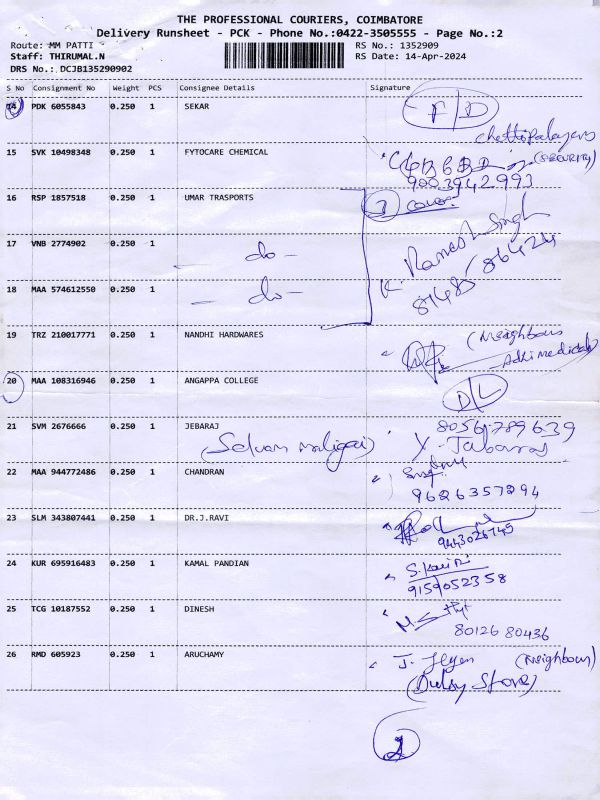 THE PROFESSIONAL COURIERS, COIMBATORE
Delivery Runsheet - PCK - Phone No.:0422-3505555 - Page No.:2
Route: MM PATTI RS No.: 1352909
Staff: THIRUMAL.N RS Date: 14-Apr-2024
DRS No.: DCJB135290902
S No Consignment No Weight PCS Consignee Details Signature
14 PDK 6055843 0.250 1 SEKAR F/D
Chettipalayam
15 SVK 10498348 0.250 1 FYTOCARE CHEMICAL (SECURITY)
9003942993
16 RSP 1857518 0.250 1 UMAR TRASPORTS 3 cover
17 VNB 2774902 0.250 1 - do - K. Ramesh Singh
18 MAA 574612550 0.250 1 - do - 81485/86424
19 TRZ 210017771 0.250 1 NANDHI HARDWARES (Neighbour
Adhi medicals)
20 MAA 108316946 0.250 1 ANGAPPA COLLEGE D/L
21 SVM 2676666 0.250 1 JEBARAJ 8056789639
(Selvam maligai) Y. Jabaraj
22 MAA 944772486 0.250 1 CHANDRAN
9626357294
23 SLM 343807441 0.250 1 DR.J.RAVI
9443026749
24 KUR 695916483 0.250 1 KAMAL PANDIAN
9159052358
25 TCG 10187552 0.250 1 DINESH
80126 80436
26 RMD 605923 0.250 1 ARUCHAMY (Neighbour)
Store)